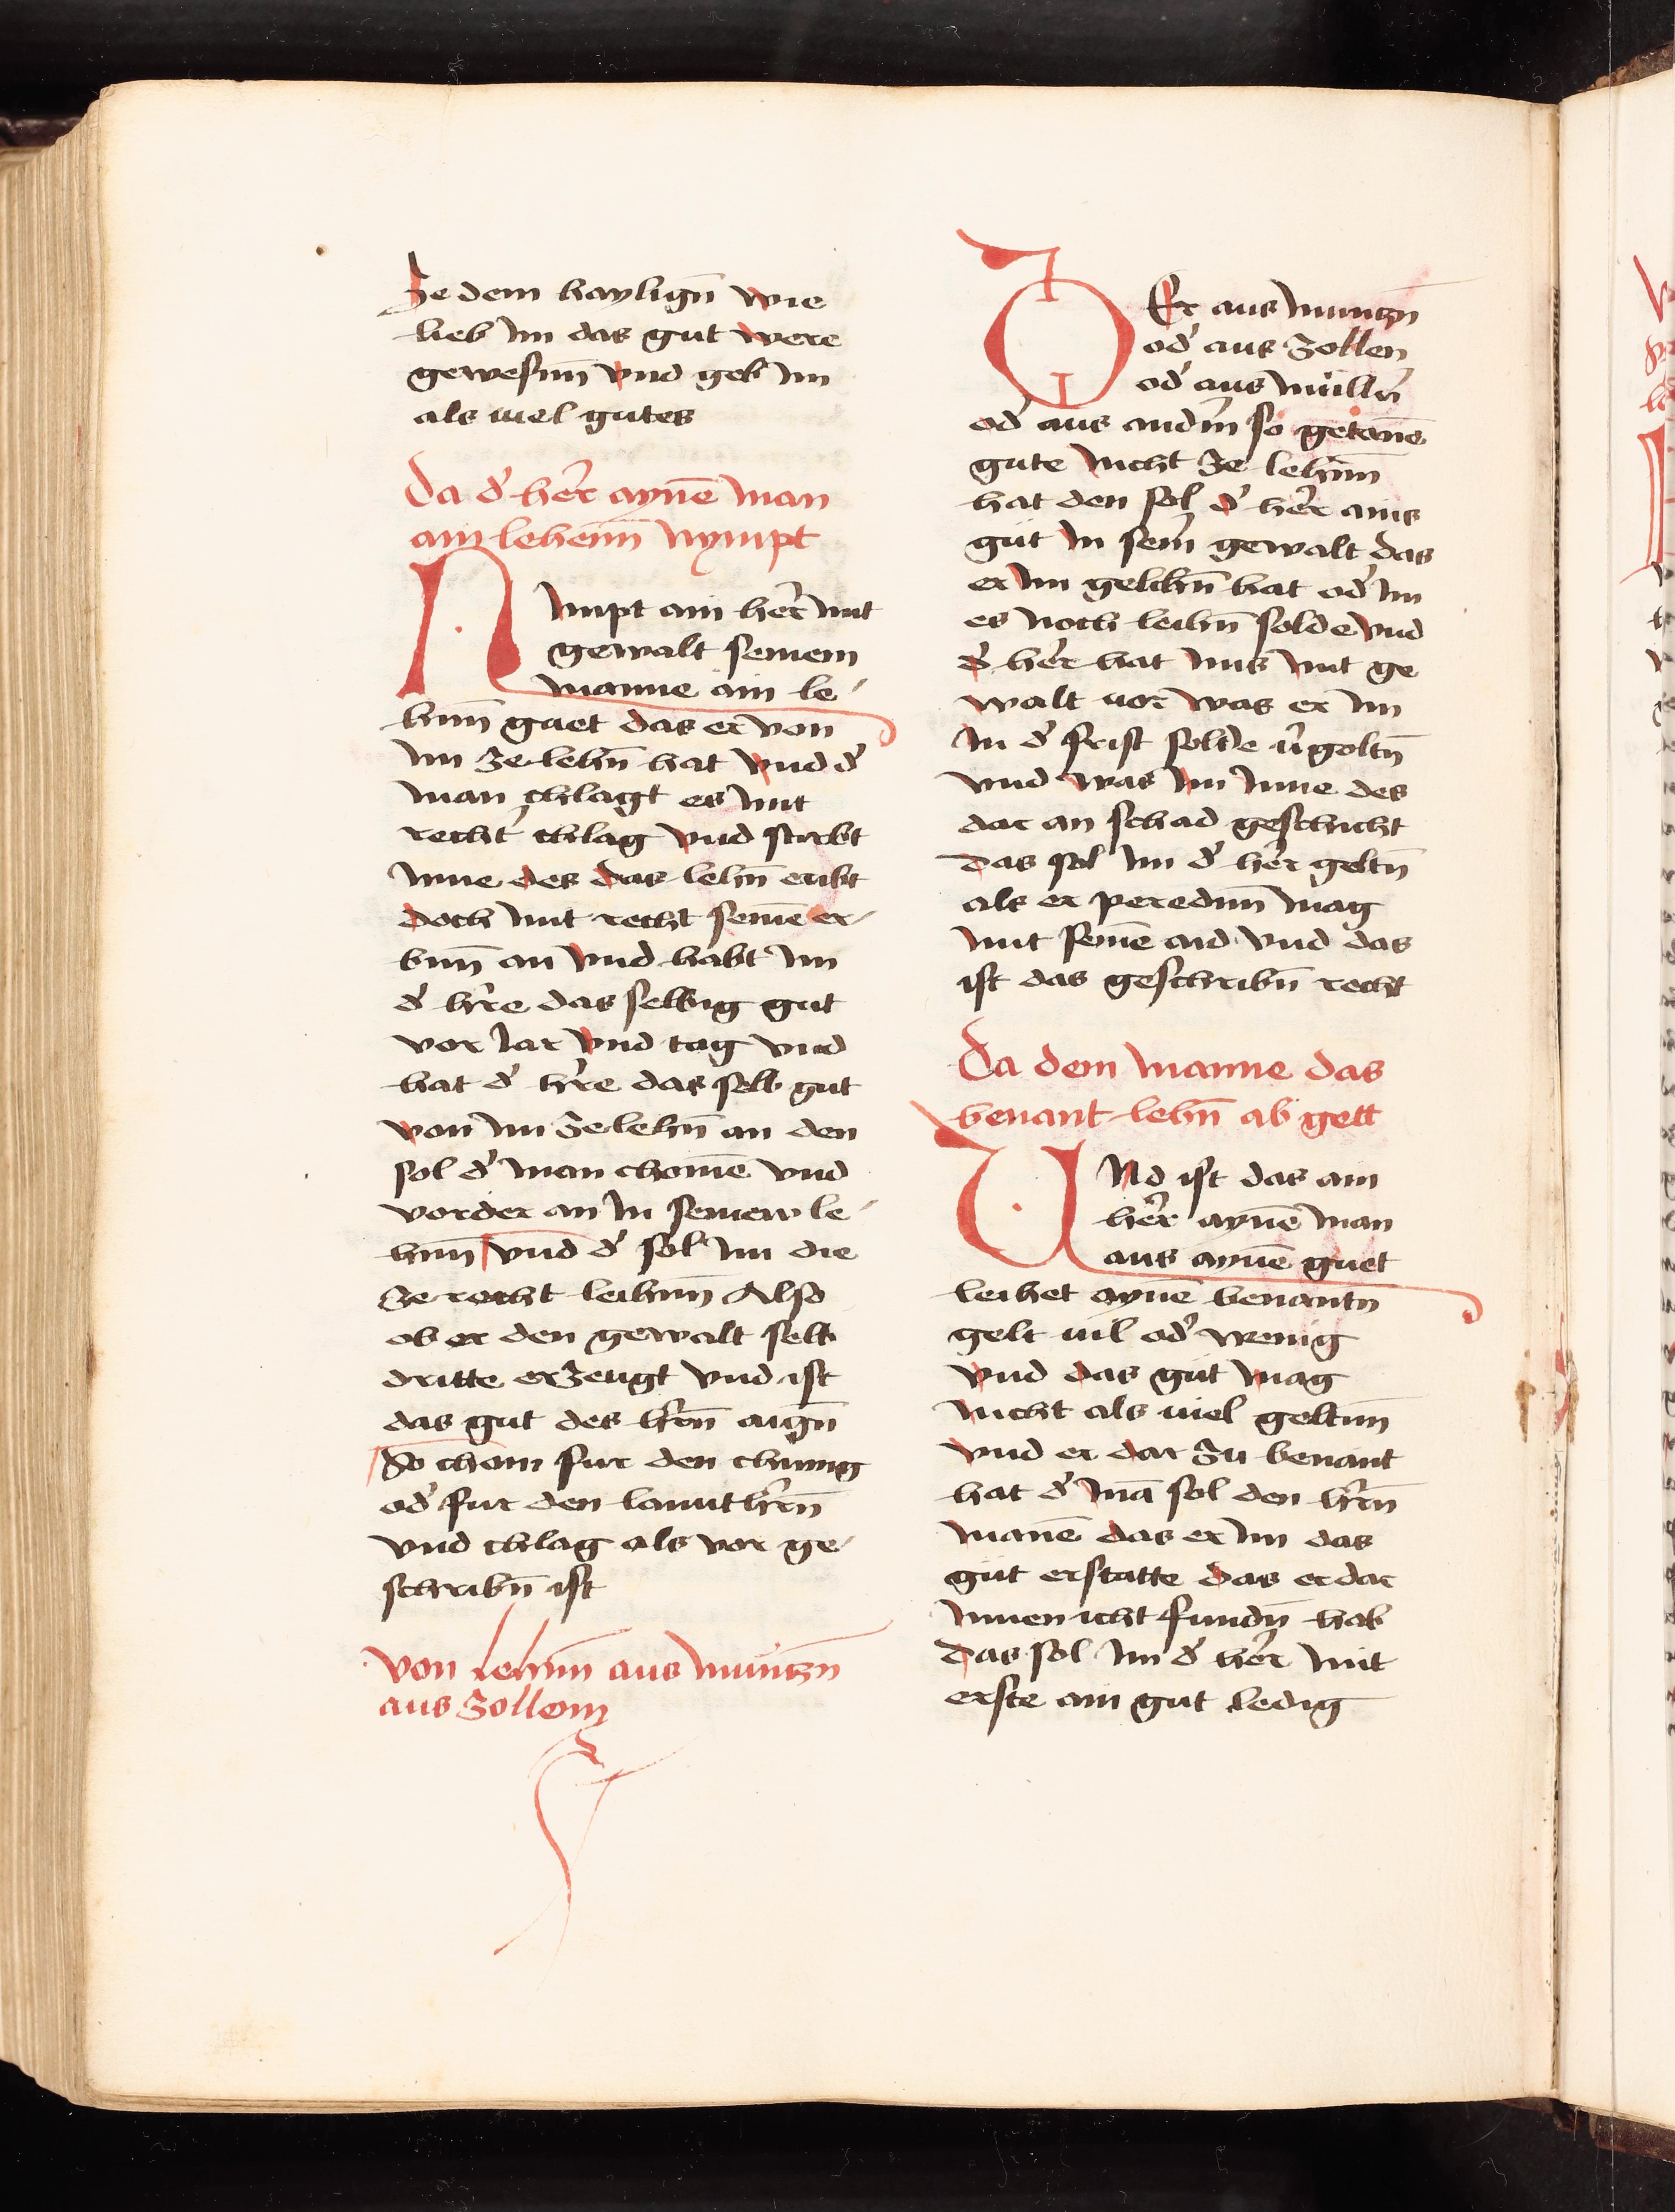 Ze dem haylign̄ wie
lieb im das gut were
gewesinn̄ vnd geb im
als uiel gutes
Da d' her̕ aynē man
ain lehenn̄ nympt
Nimpt ain her̕ mit
gewalt seinem
manne ain le-
hnn̄ guet das er von
im ze lehn̄ hat vnd d'
man chlagt es mit
recht' chlag vnd stirbt
Inne des das lehn̄ eribt
doch mit recht seinē er-
bnn̄ an vnd habt im
d' hr̕re das selbig gut
vor Iar vnd tag vnd
hat d' hr̕re das selb gut
von im ze lehn̄ an den
sol d' man chomē vnd
vorder an in seinew le-
hnn̄ vnd d' sol im die
ze recht leihnn̄ Also
ob er den gewalt selb
dritte erzeugt vnd ist
das gut des hr̕rn̄ aign̄
So chom fur den chunig
od' fur den lannthr̕rn̄
vnd chlag als vor ge-
schribn̄ ist
von lehnn̄ aus munssn
aus zollem
DEr aus munssn
od' aus zollen
od' aus mülln̄
od' aus andn̄ so getanē
gute nicht ze lehnn̄
hat den sol d' her̕ ains
gut in sein̄ gewalt das
er im gelihn̄ hat od' im
es noch leihn̄ solde vnd
d' her̕ hat ims mit ge
walt vor was er im
In d' frist solde v̕goltn̄
vnd was im Inne des
dar an schad geschicht
das sol im d' her̕ geltn̄
als er peredinn̄ mag
mit seinē aid vnd das
ist das geschribn̄ recht
Da dem manne das
benant lehn̄ ab gett
UNd ist das ain
her̕ aynē man
aus aynē guet
leihet aynē benantn
gelt uil od' wenig
vnd das gut mag
nicht als uiel geltnn̄
vnd er dar zu benant
hat d' mā sol den hr̕rn̄
manē das er im das
gut erstatte das er dar
Innen icht fundn̄ hab
das sol im d' her̕ mit
erste ain gut ledig